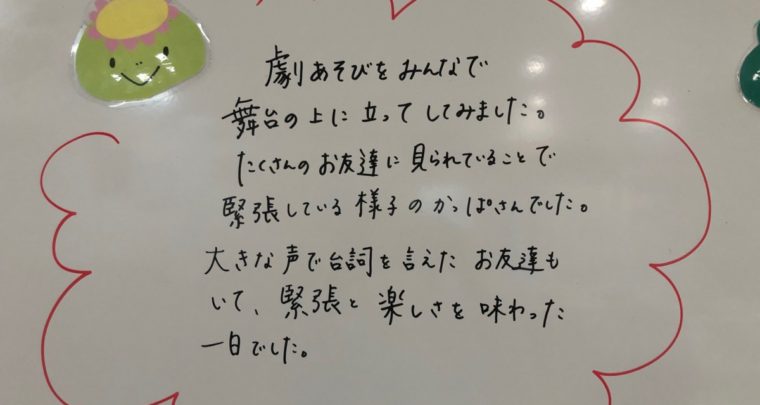 劇あそびをみんなで
舞台の上に立ってしてみました。
たくさんのお友達に見られていることで
緊張している様子のかっぱさんでした。
大きな声で台詞を言えたお友達も
いて、緊張と楽しさを味わった
一日でした。